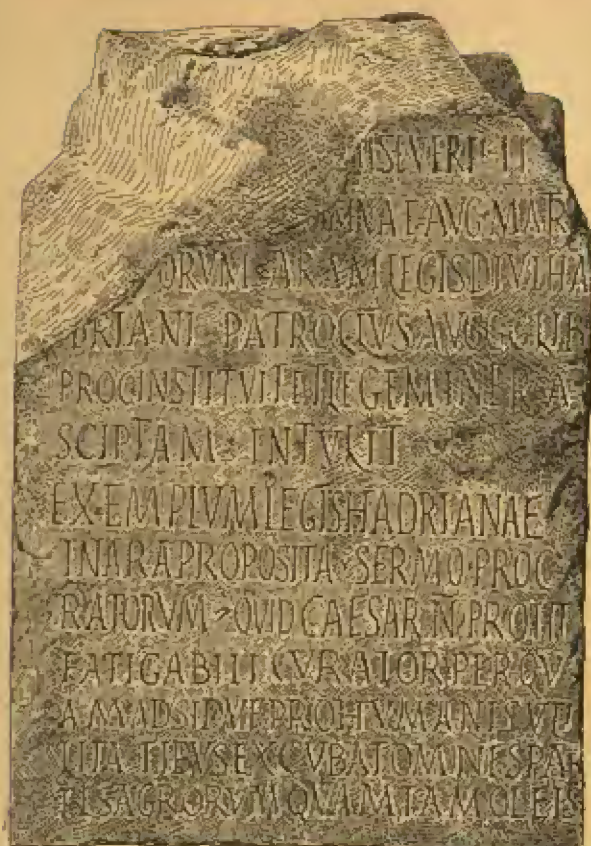 IISEVERI II
MNAE AVG MAR
ORVM ARAM LEGIS DIVI HA
DRIANI PATROCLVS AVGGG LIB
PROC INSTITVIT ET LEGEM INER A
SCIPTAM INTVLIT
EXEMPLVM LEGIS HADRIANAE
IN ARA PROPOSITA SERMO PROC
RATORVM QVID CAESAR N PRO
FATIGABILI CVRATOR PER QV
AM ADSIDVE PRO HVMANIS VTI
LITATIBVS EXCVBAT OMNES PAR
TIS AGRORVM QVAM TAM OLEIS